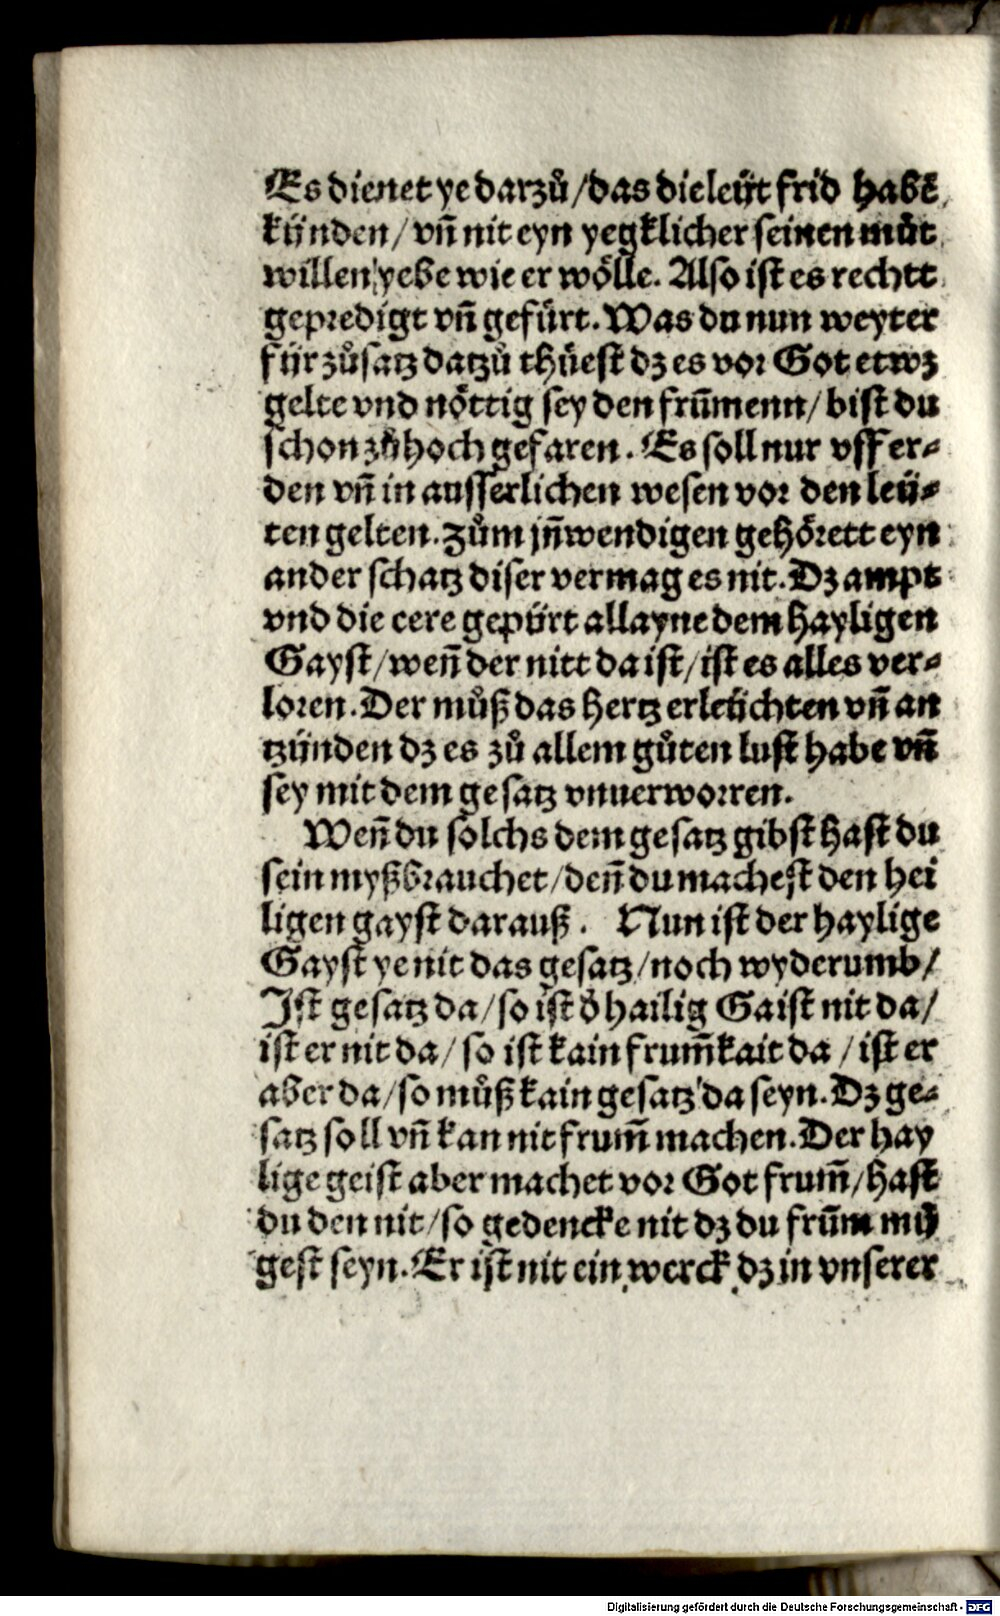 Es dienet ye darzů / das die leüt frid habē
künden / vñ nit eyn yegklicher seinen můt
willen yebe wie er wölle. Also ist es rechtt
gepredigt vñ gefürt. Was du nun weyter
für zůsatz datzů thüest dz es vor Got etwz
gelte vnd nöttig sey den frūmenn / bist du
schon zů hoch gefaren. Es soll nur vff er⸗
den vñ in ausserlichen wesen vor den leü⸗
ten gelten. Zům jñwendigen gehörett eyn
ander schatz diser vermag es nit. Dz ampt
vnd die eere gepürt allayne dem Hayligen
Gayst / weñ der nitt da ist / ist es alles ver⸗
loren. Der můß das hertz erleüchten vñ an
tzünden dz es zů allem gůten lust habe vñ
sey mit dem gesatz vnuerworren.
Weñ du solchs dem gesatz gibst hast du
sein myßbrauchet / deñ du machest den hei
ligen gayst darauß. Nun ist der haylige
Gayst ye nit das gesatz / noch wyderumb /
Ist gesatz da / so ist d̄ hailig Gaist nit da /
ist er nit da / so ist kain frum̄kait da / ist er
aber da / so můß kain gesatz da seyn. Dz ge⸗
satz soll vñ kan nit frum̄ machen. Der hay
lige geist aber machet vor Got frum̄ / hast
du den nit / so gedencke nit dz du frūm mü
gest seyn. Er ist nit ein werck dz in vnserer
Digitalisierung gefördert durch die Deutsche Forschungsgemeinschaft - DFG